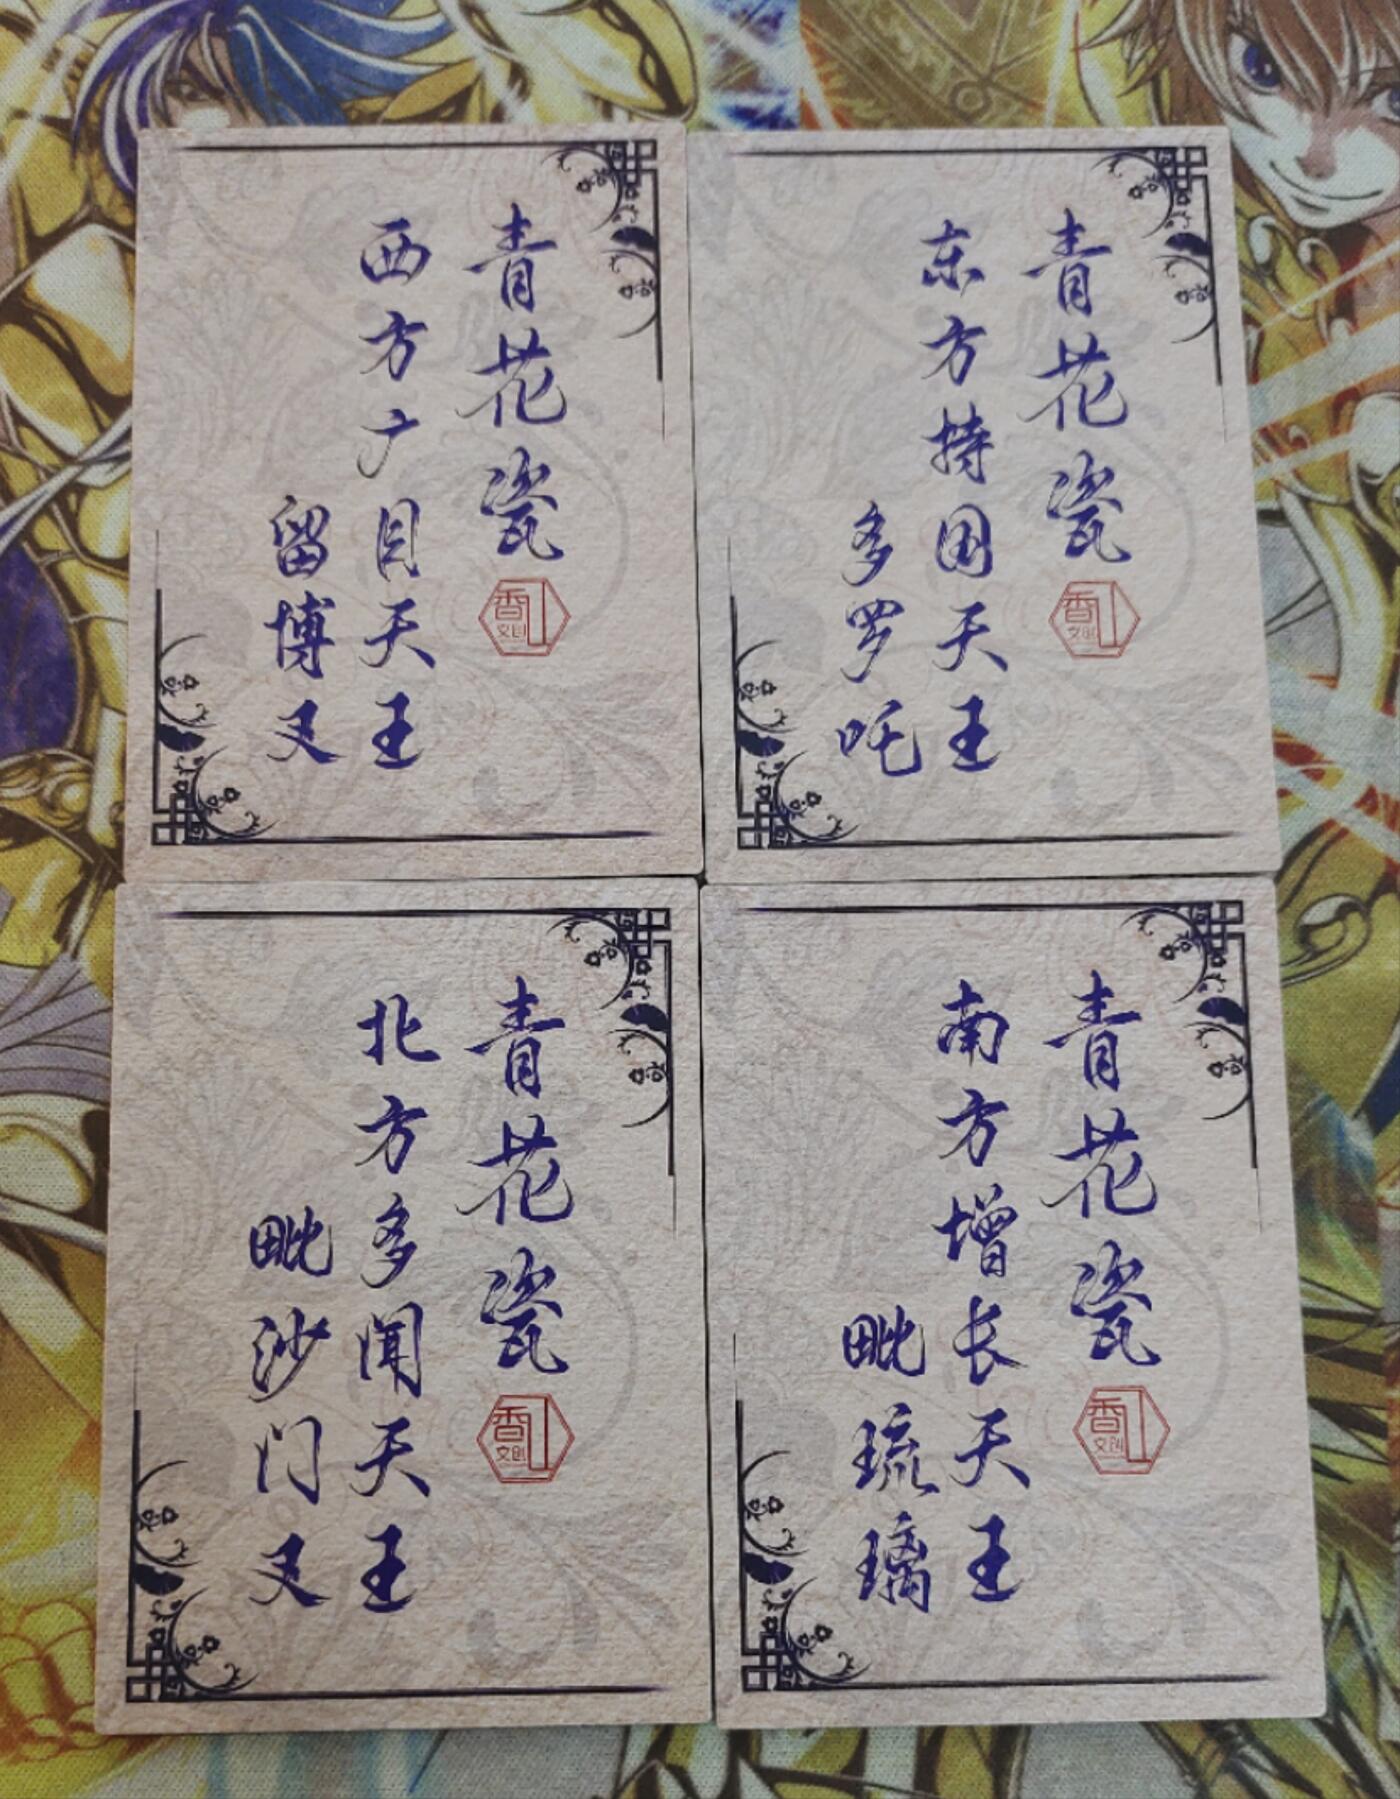 青花瓷
西方广目天王
留博叉
香山
文创
青花瓷
东方持国天王
多罗吒
香山
文创
青花瓷
北方多闻天王
毗沙门叉
香山
文创
青花瓷
南方增长天王
毗琉璃
香山
文创